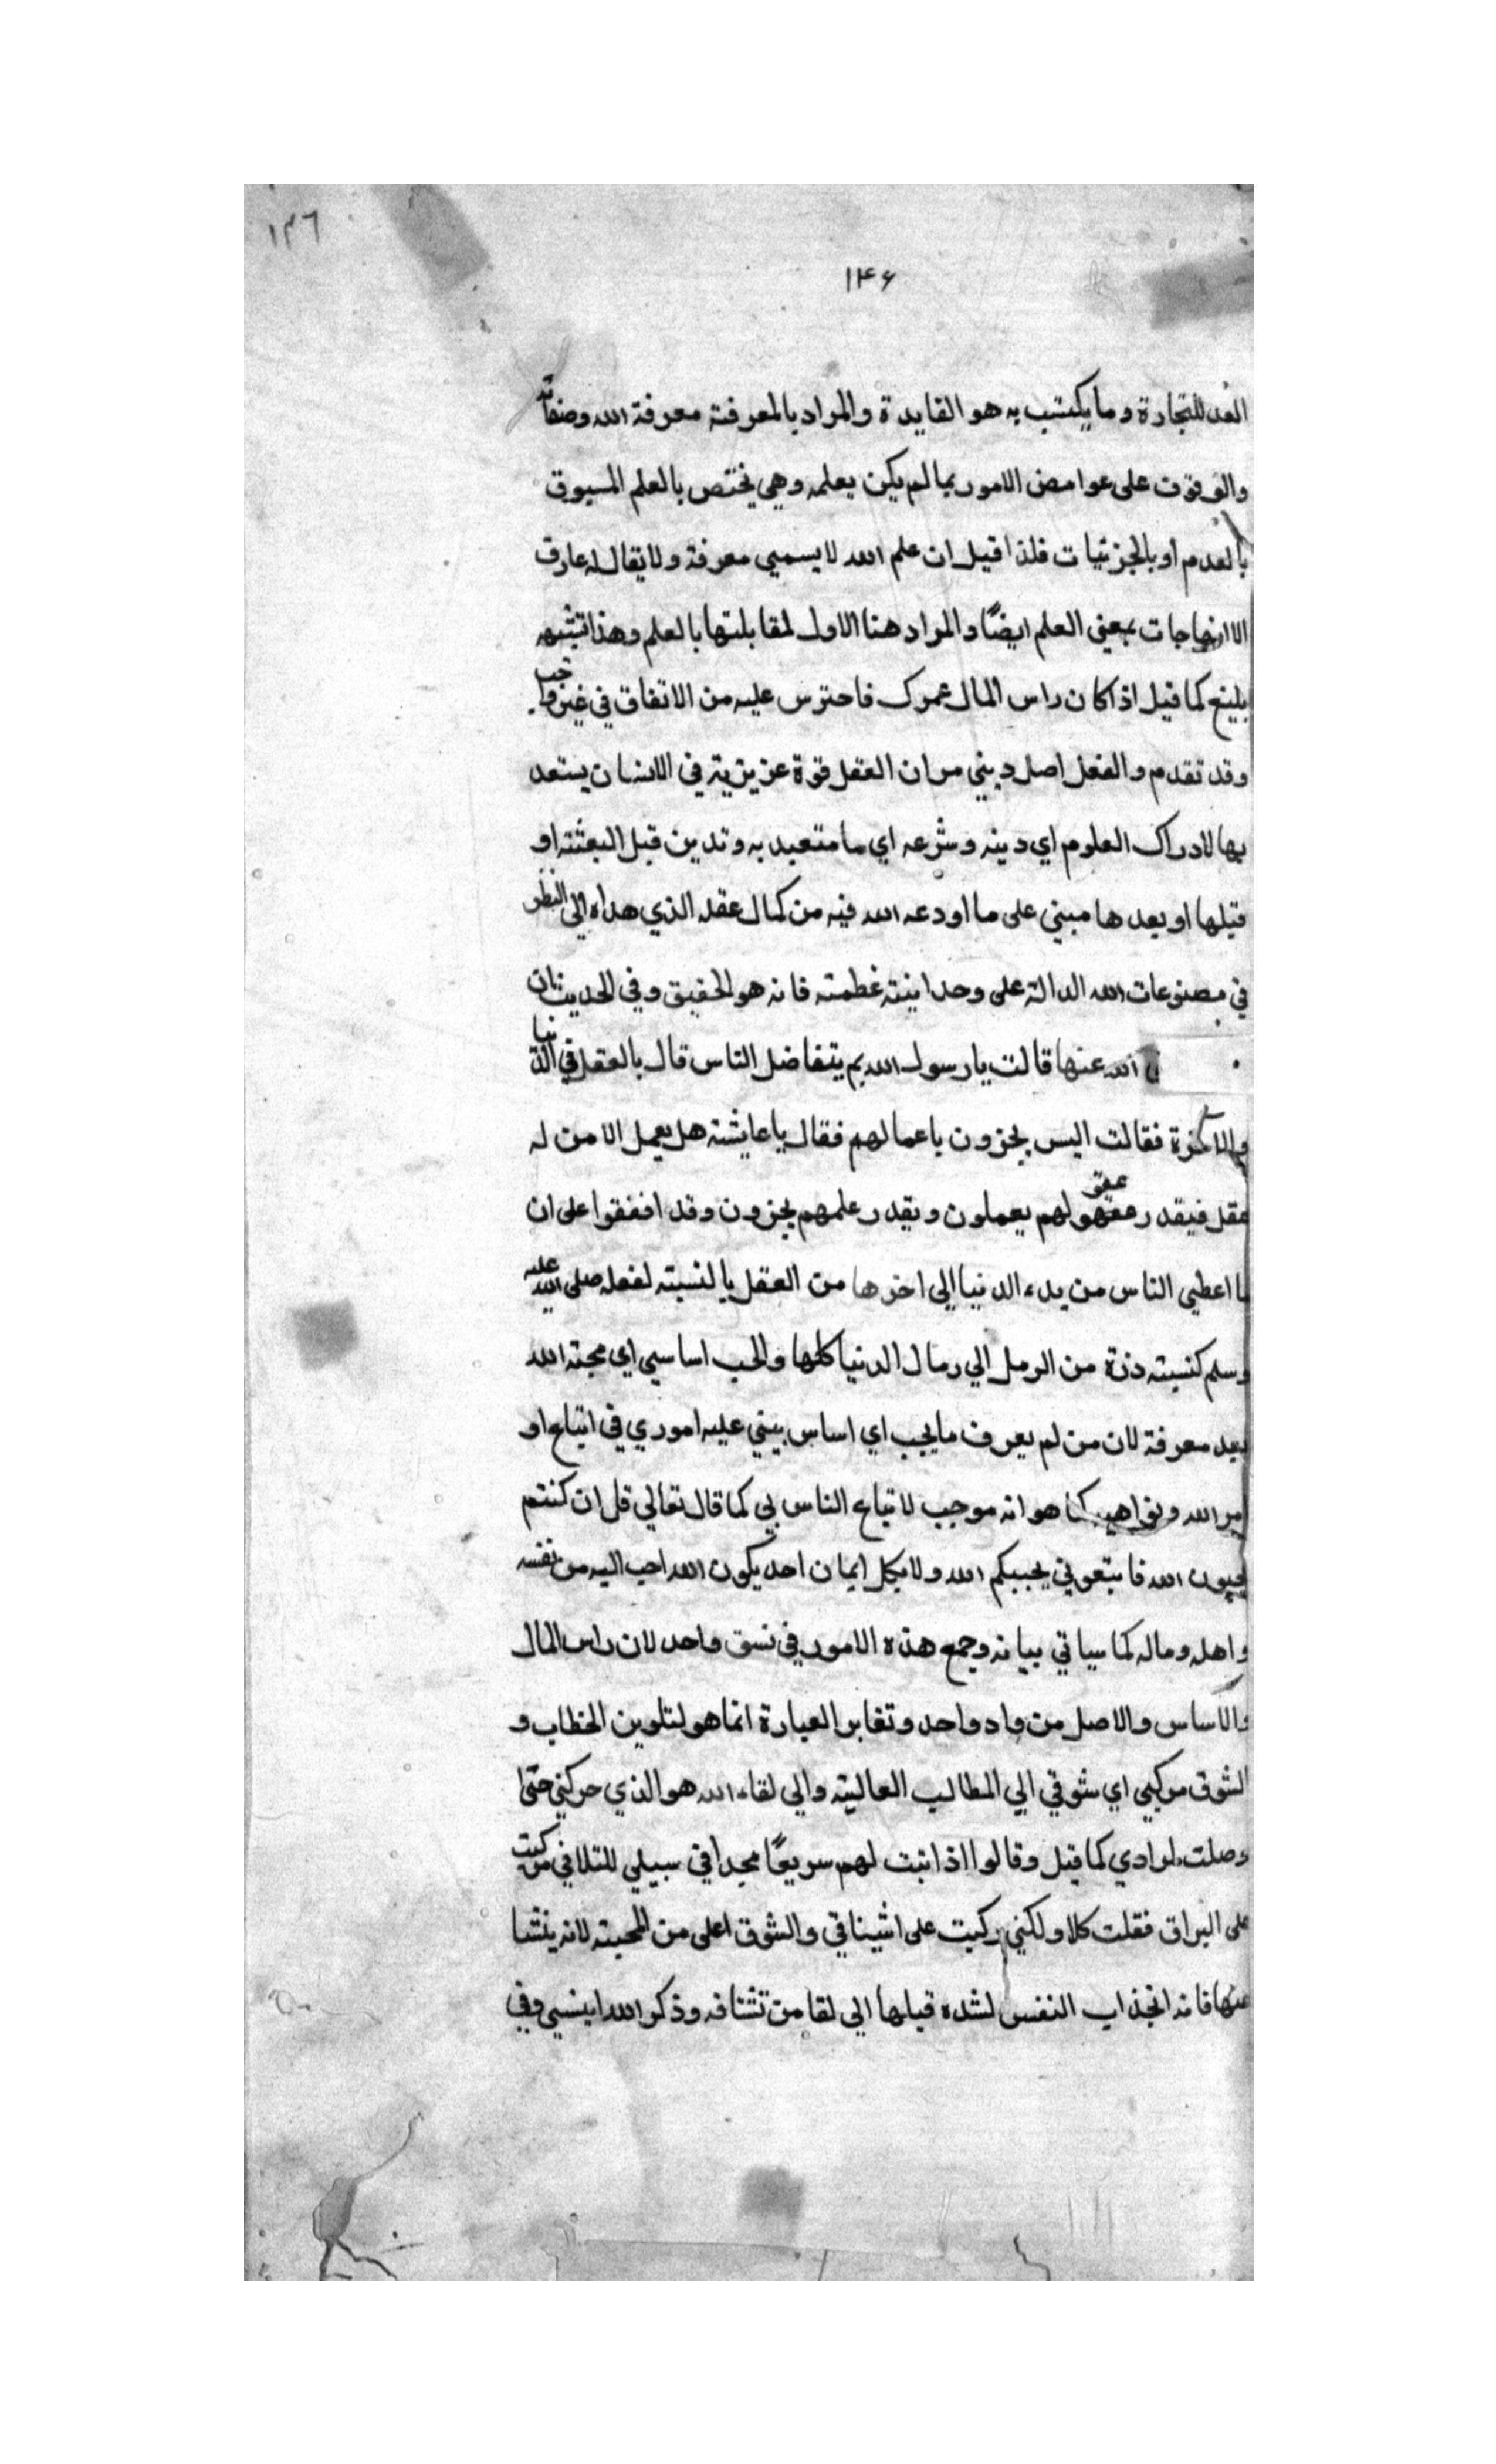 ١٣٦
١٤٦
المعد للتجارة وما يكتسب به هو الفايدة والمراد بالمعرفة معرفة الله وصفاته
والوقوف على عوامض الامور بما لم يكن يعلمه وهي يختص بالعلم المسبوق
بالعدم او بالجزئيات فلذا قيل ان علم الله لا يسمي معرفة ولا يقال له عارف
الا انها جات بمعني العلم ايضًا والمراد هنا الاول لمقابلتها بالعلم وهذا تشبيه
بليغ كما قيل اذا كان راس المال عمرك فاحترس عليه من الاتفاق في غير واجب
وقد تقدم والفعل اصل ديني من ان العقل قوة عزيزية في الانسان يستعد
بها لادراك العلوم اي دينه وشرعه اي ما متعبد به وتدين قبل البعثته او
قبلها او بعدها مبني على ما اودعه الله فيه من كمال عقله الذي هداه الى النظر
في مصنوعات الله الدالة على وحدانيته غطمته فانه هو الحقيق وفي الحديث ان
الله عنها قالت يا رسول الله بم يتفاضل الناس قال بالعقل في الدنيا
والاخرة فقالت اليس يجزون باعمالهم فقال يا عايشته هل يعمل الا من له
عقل فيقدر عقولهم يعملون وبقدر علمهم يجزون وقد اففقوا على ان
ما اعطي الناس من بدء الدنيا الى اخرها من العقل بالنسبته لفعله صلى الله عليه
وسلم كنسبته ذرة من الرمل الي رمال الدنيا كلها والحب اساسي اي محبته الله
بعد معرفة لان من لم يعرف ما يجب اي اساس بيني عليه اموري في اتباع او
امر الله ونواهيه كما هو انه موجب لاتباع الناس بي كما قال تعالي قل ان كنتم
تحبون الله فاتبعوني يحببكم الله ولا يكل ايمان احد يكون الله احب اليه من نفسه
واهله وماله كما سياتي بيانه وجمع هذه الامور في نسق واحد لان راس المال
والاساس والاصل من واد واحد وتغاير العبارة انما هو لتلوين الخطاب و
الشوق مركبي اي شوقي الي المطالب العالية والي لقاء الله هو الذي حركني حتى
وصلت لوادي كما قيل وقالوا اذا اتيت لهم سريعًا مجدا في سبيلي للتلافي ركبت
على البراق فقلت كلا ولكني ركبت على اشيناقي والشوق اعلى من المحبته لانه ينشا
عنها فانه انجذاب النفس لشده قبلها الى لقا من تشتافه وذكر الله انيسي وفي